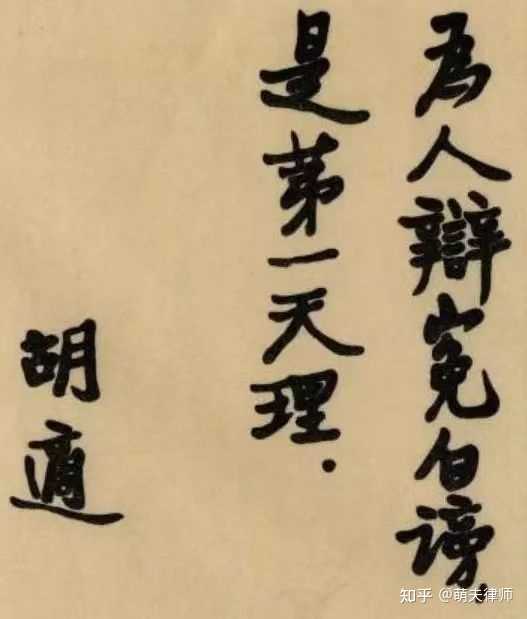 為人辯冤白謗,
是第一天理.
胡適
知乎 @萌夫律师